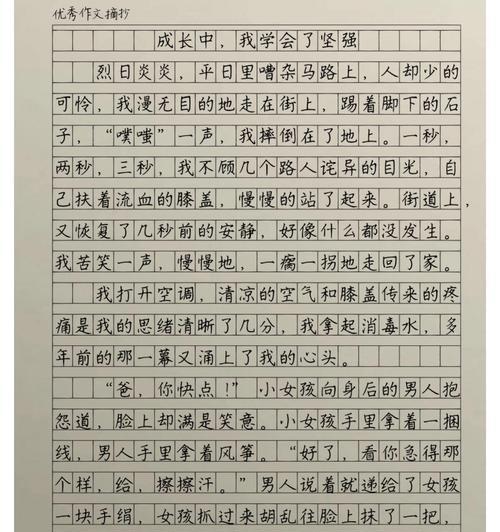 优秀作文摘抄
成长中，我学会了坚强
烈日炎炎，平日里嘈杂马路上，人却少的
可怜，我漫无目的地走在街上，踢着脚下的石
子，“噗嗤”一声，我摔倒在了地上。一秒，
两秒，三秒，我不顾几个路人诧异的目光，自
己扶着流血的膝盖，慢慢的站了起来。街道上，
又恢复了几秒前的安静，好像什么都没发生。
我苦笑一声，慢慢地，一瘸一拐地走回了家。
我打开空调，清凉的空气和膝盖传来的疼
痛是我的思绪清晰了几分，我拿起消毒水，多
年前的那一幕又涌上了我的心头。
“爸，你快点！”小女孩向身后的男人抱
怨道，脸上却满是笑意。小女孩手里拿着一捆
线，男人手里拿着风筝。“好了，看你急得那
个样，给，擦擦汗。”男人说着就递给了女孩
一块手绢，女孩抓过来胡乱往脸上抹了一把，